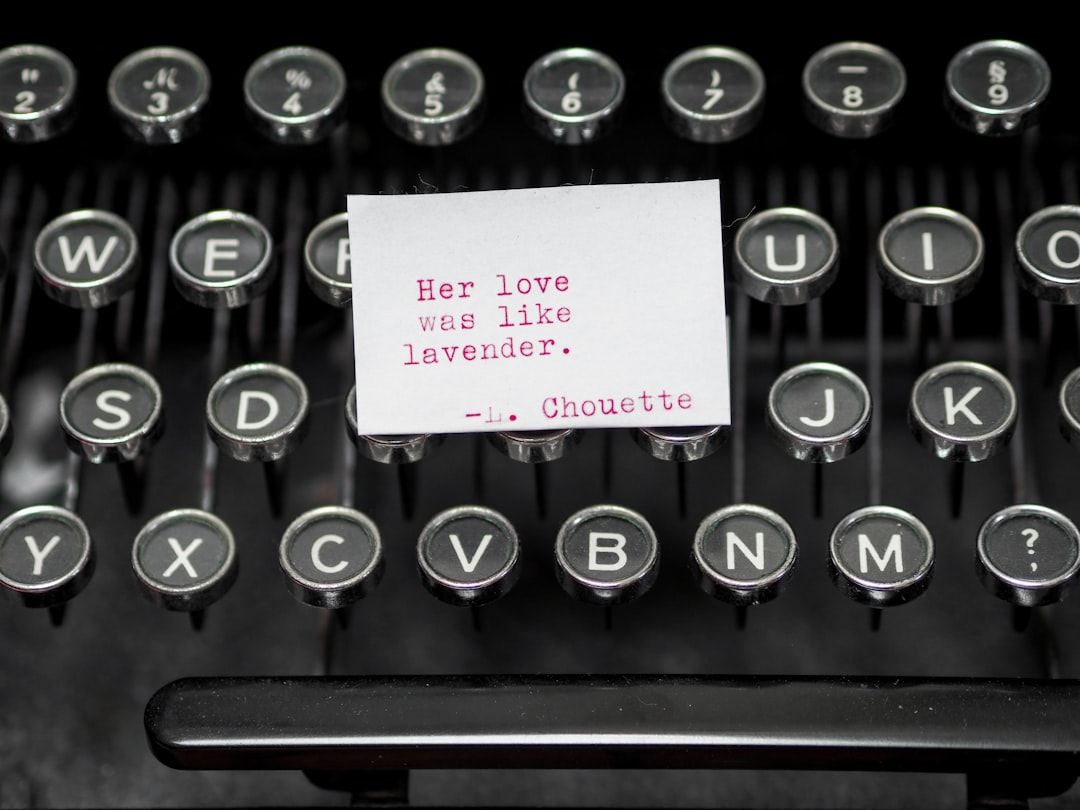 " 2 ℳ 3 % 4 & 5 ( 6 ) 7 — 8 § 9
W E R U I O
Her love
was like
lavender.
-L. Chouette
S D J K
Y X C V B N M ? ,